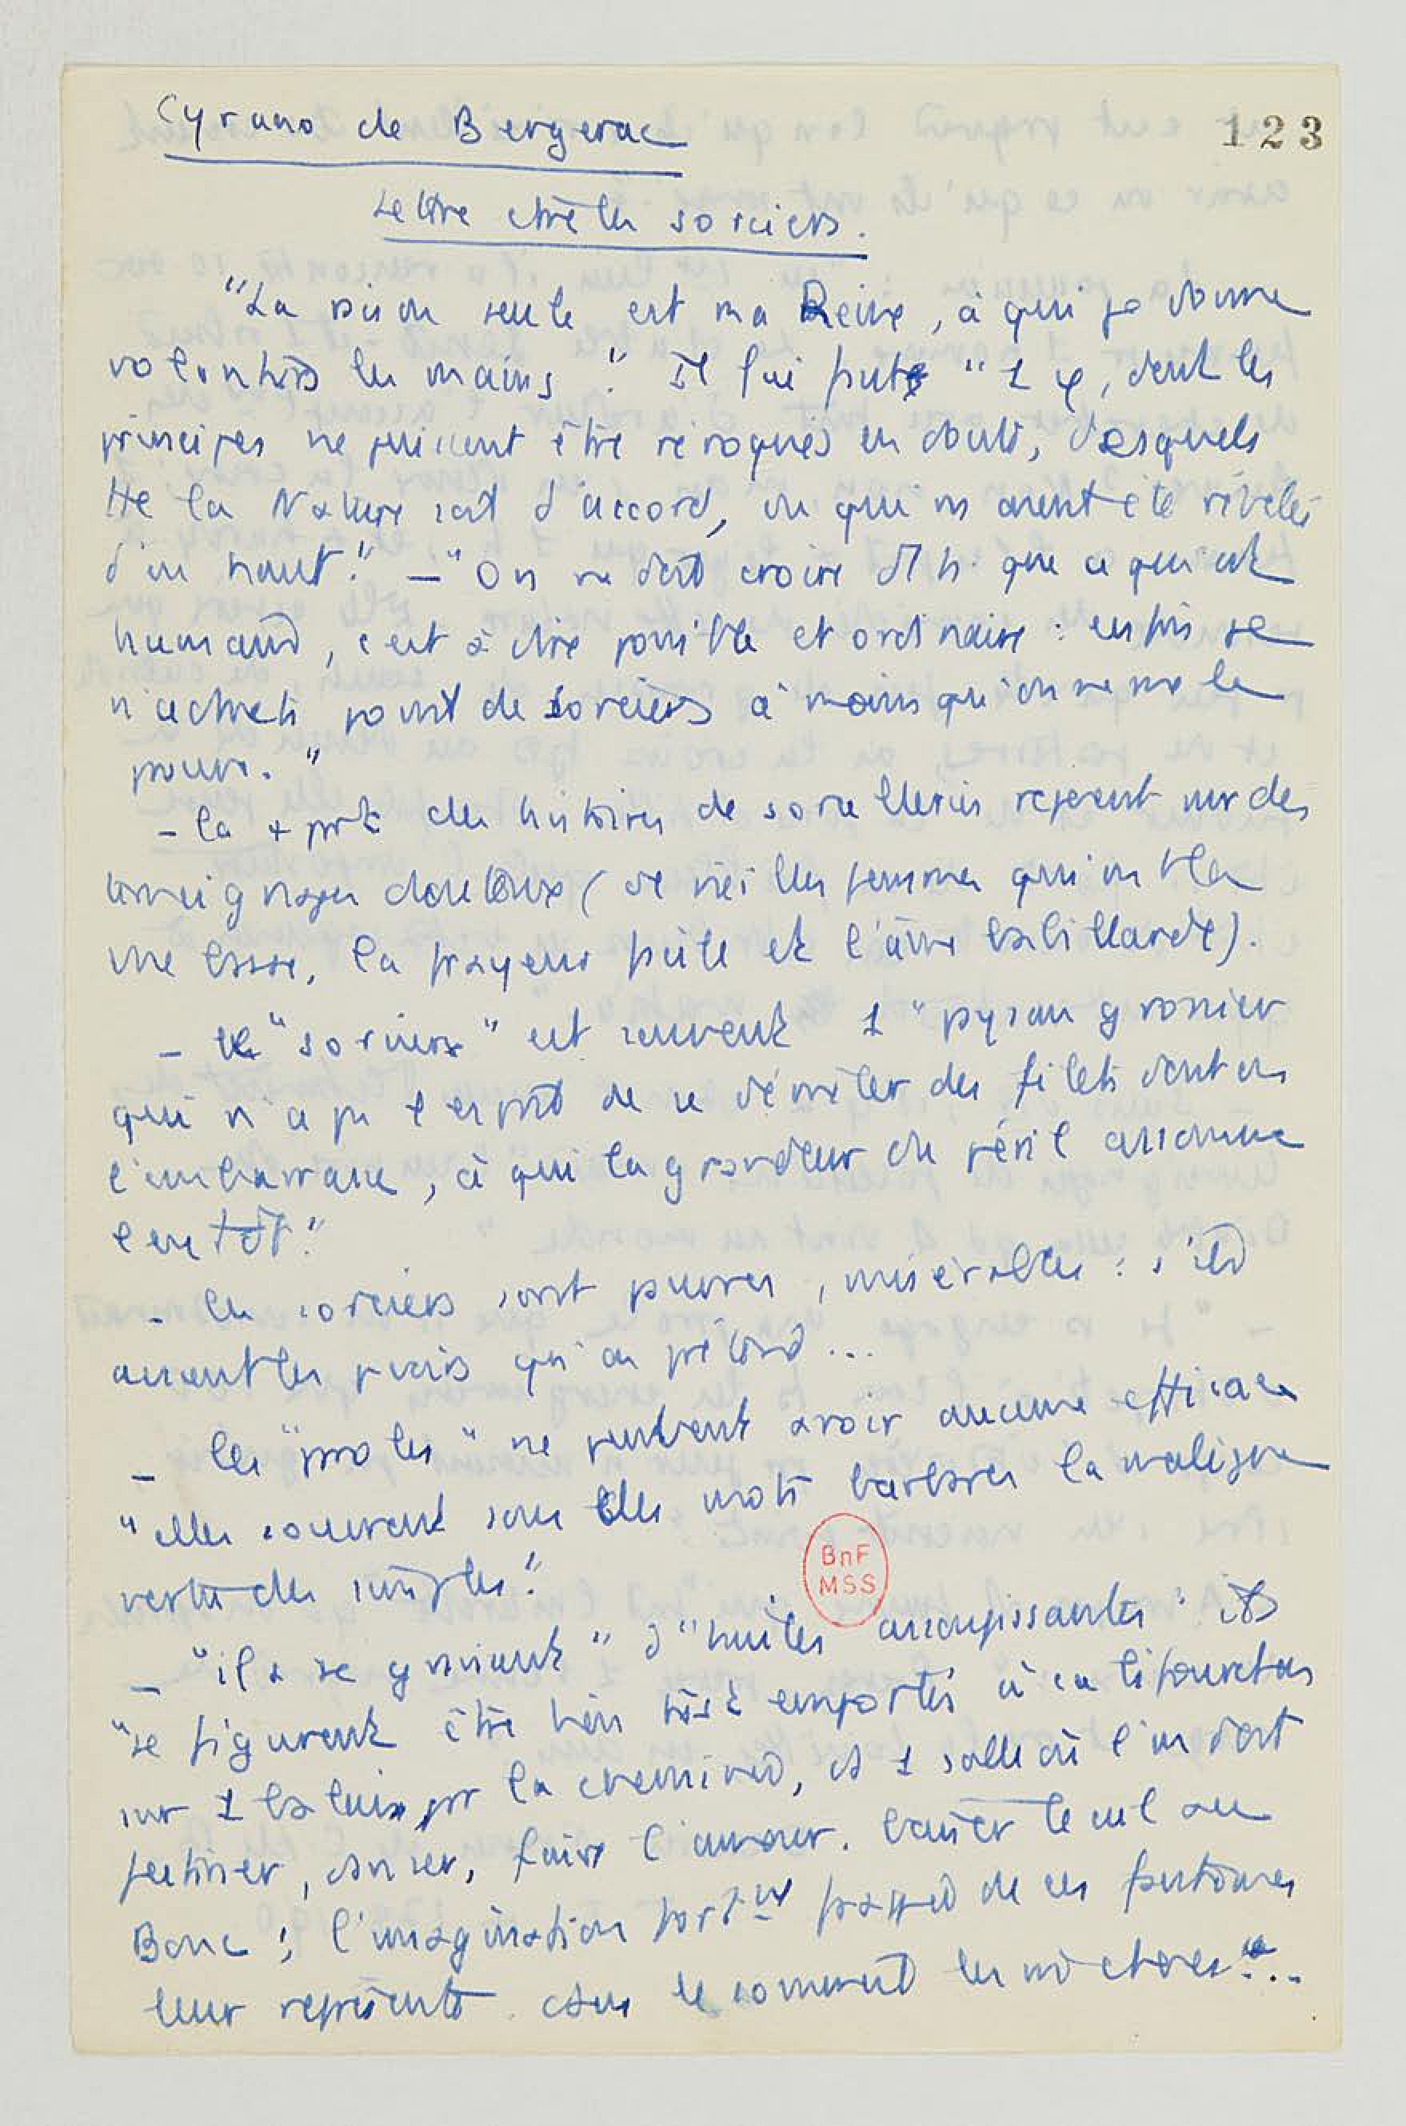 Cyrano de Bergerac
123
Lettre ctre les sorciers.
"La raison seule est ma Reine, à qui je donne
volontiers les mains." Il lui faut "1 φ, dont les
principes ne puissent être revoqués en doute, desquels
tte la Nature soit d'accord, ou qui ns aient été révélés
d'en haut." — "On ne doit croire d'1 h. que ce qui est
humain, c'est à dire possible et ordinaire : enfin je
n'admets point de sorciers à moins qu'on ne me le
prouve."
- la + part des histoires de sorcelleries reposent sur des
témoignages douteux (de vieilles femmes qui ont la
vue basse, la frayeur facile et l'âme babillarde).
- le "sorcier" est souvent 1 "paysan grossier
qui n'a pas l'esprit de se démêler des filets dont on
l'embarrasse, à qui la grandeur du péril assomme
l'ent
- les sorciers sont pauvres, misérables : s'ils
avaient les pvoirs qu'on prétend...
- les "paroles" ne peuvent avoir aucune efficace
"elles couvrent sous des mots barbares la maligne
vertu des simples."
- "ils se graissent" d'"huiles assoupissantes" ils
"se figurent être bientôt emportés à califourchon
sur 1 balai par la cheminée, ds 1 salle où l'on doit
festiner, danser, faire l'amour, baiser le cul au
Bouc ; l'imagination fortmt frappée de ces fantômes
leur représente dans le sommeil les mê choses"...
BnF
MSS